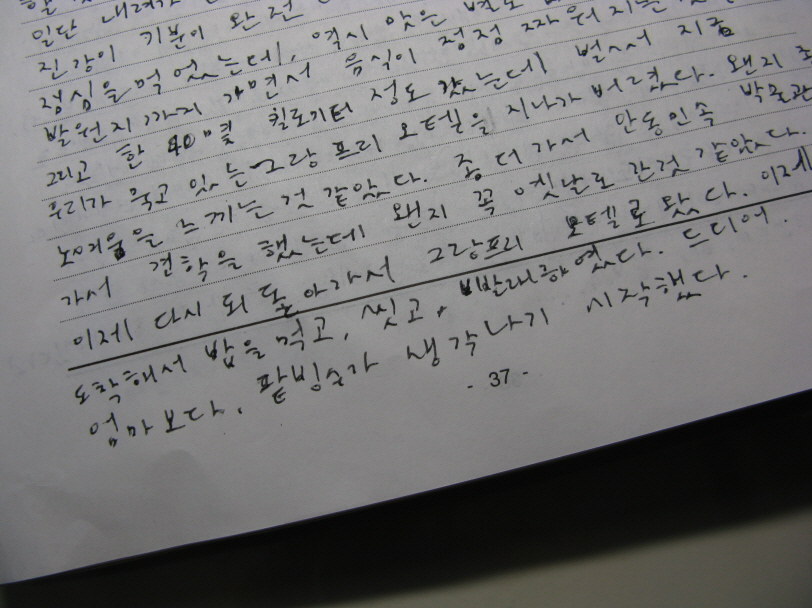 일단 내려가
진강이 기분이 완전
점심을 먹었는데, 역시 맛은 별로
발원지까지 가면서 음식이 점점 짜워지는 것
그리고 한 40 몇 킬로미터 정도 갔는데 벌써서 지금
우리가 묵고 있는 그랑프리 모텔을 지나가 버렸다. 왠지
노여움을 느끼는 것 같았다. 좀 더 가서 안동민속 박물관
가서 견학을 했는데 왠지 꼭 옛날로 간것 같았다.
이제 다시 되돌아가서 그랑프리 모텔로 왔다. 이제
도착해서 밥을 먹고, 씻고, 빨래하였다. 드디어.
엄마보다, 팥빙수가 생각나기 시작했다.
- 37 -